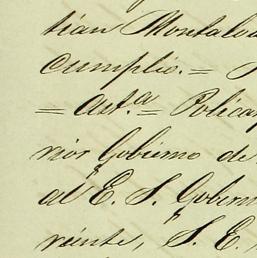 tian Montalvo
Cumplio. =
= Aut.ª = Policar
rior Gobierno de
al E. S. Gobern
reinte, S. E.